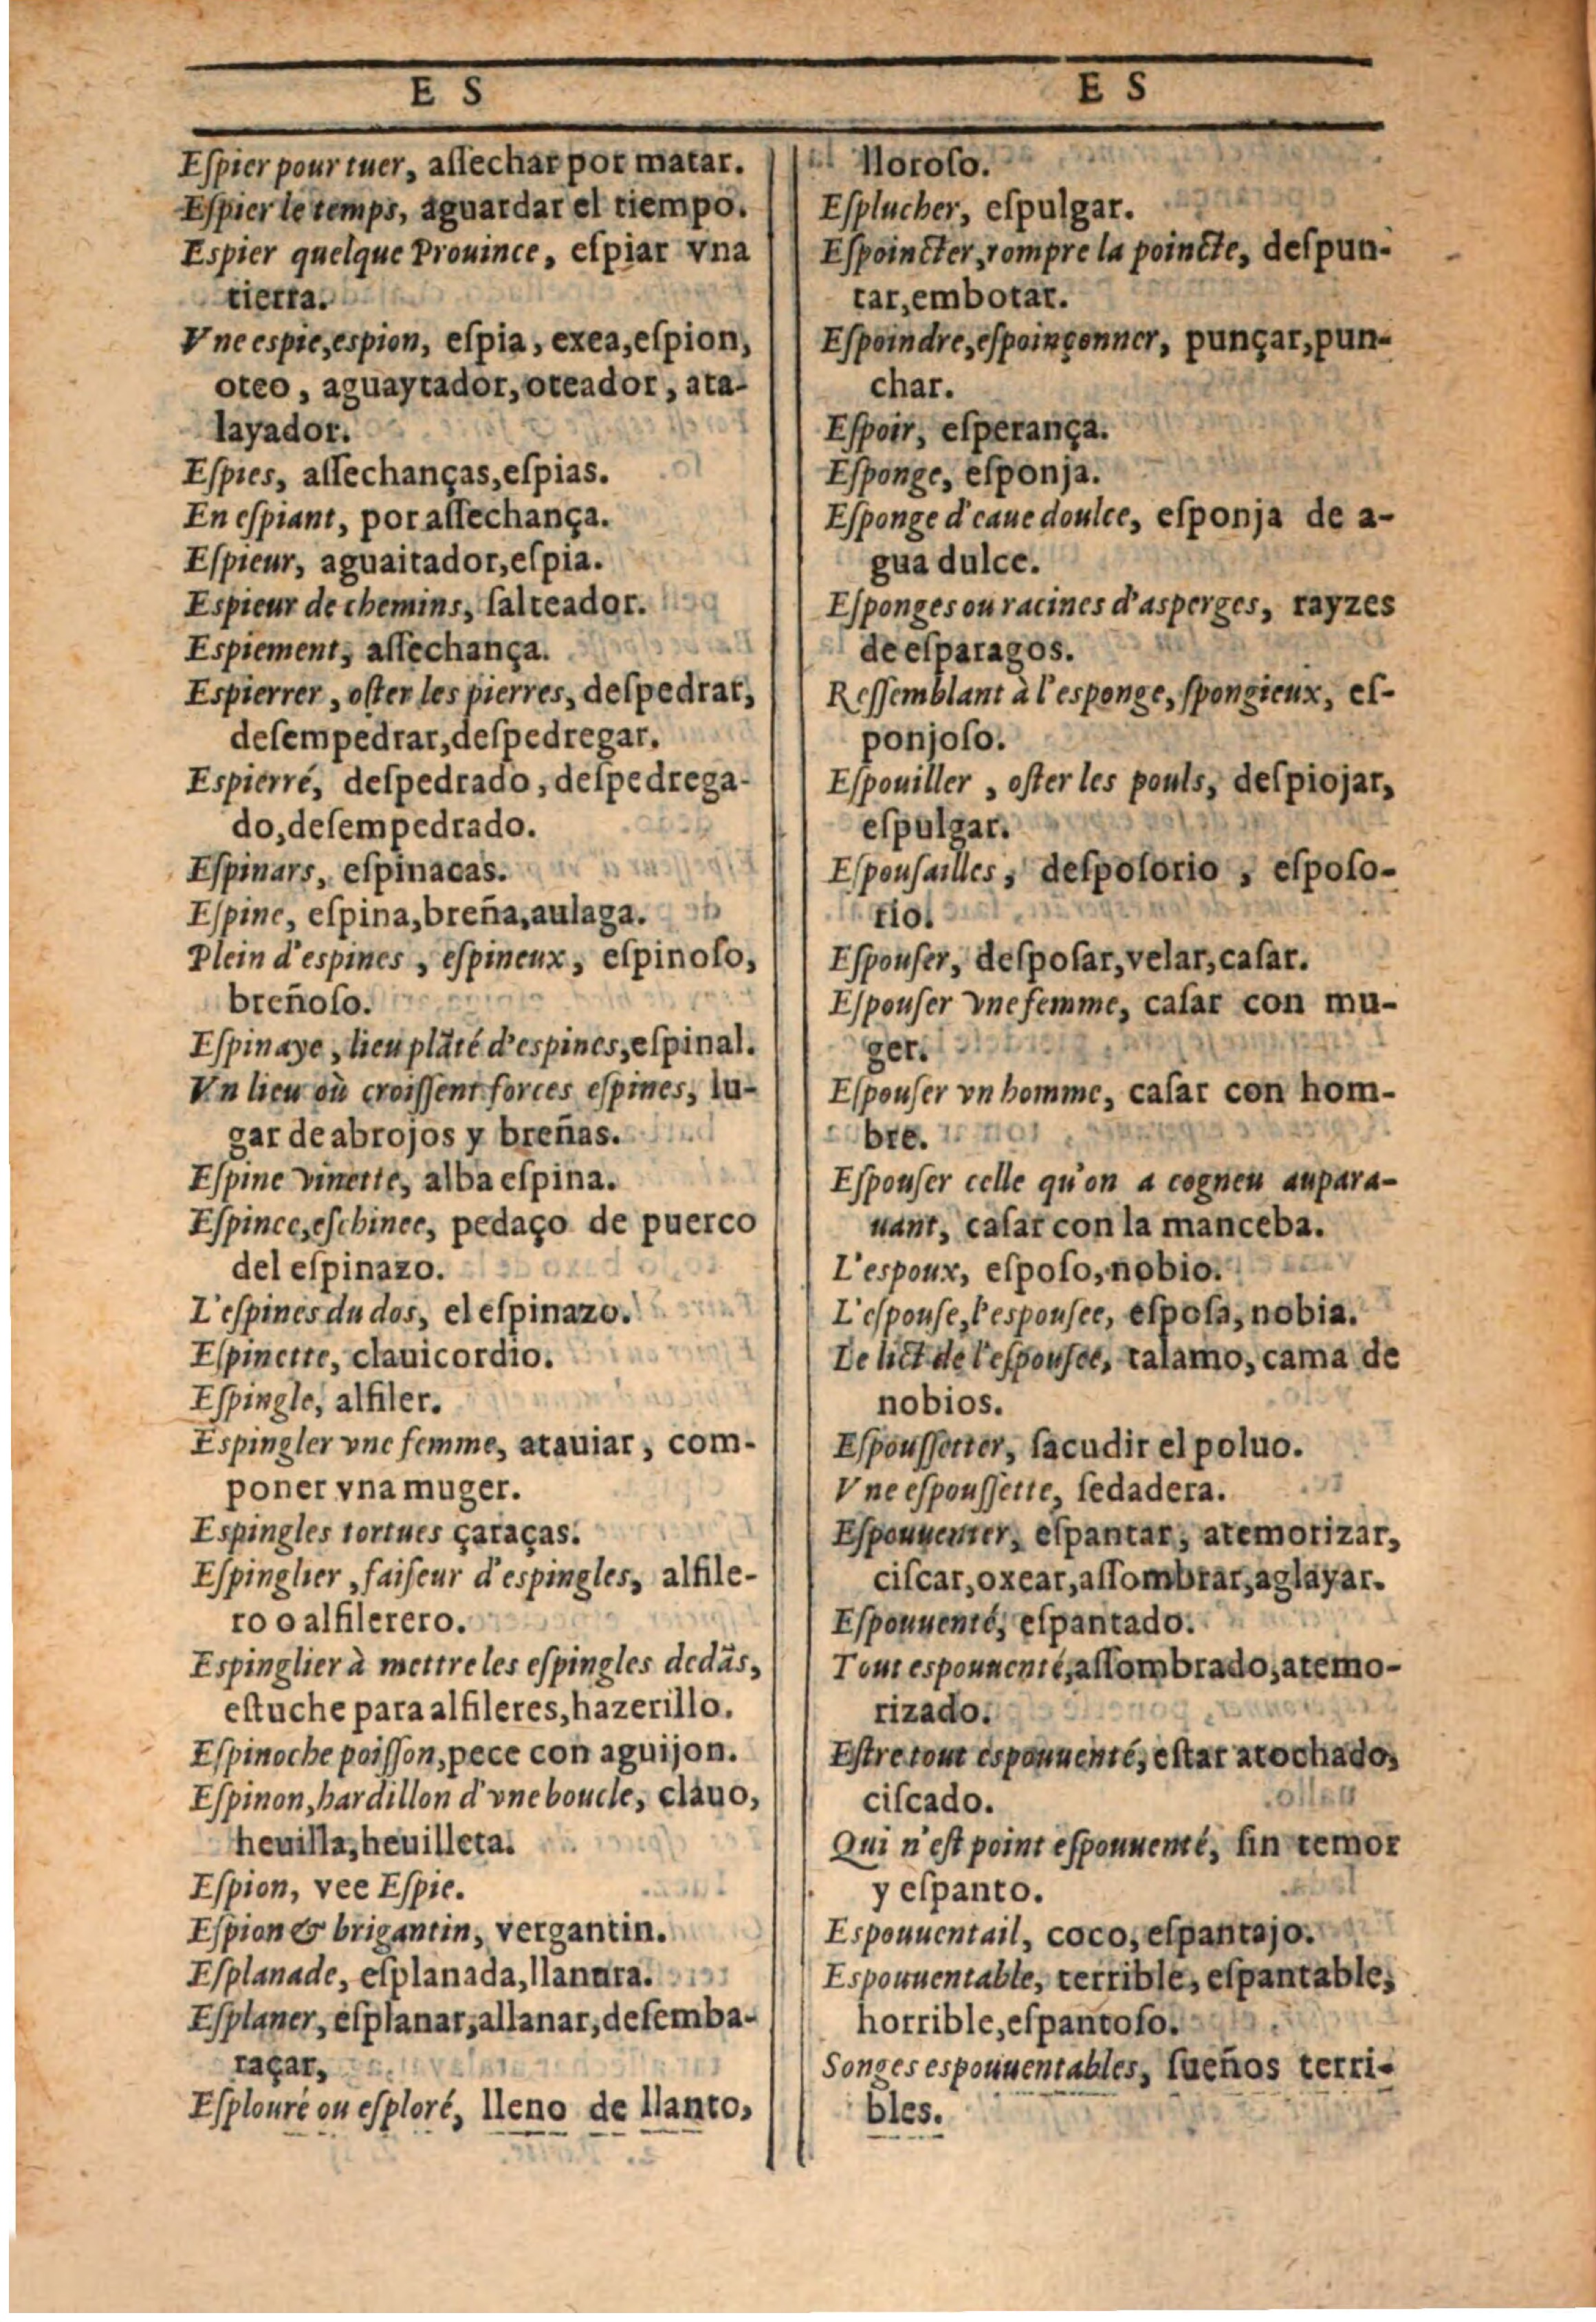 E S
Eſpier pour tuer, aſſechar por matar.
Eſpier le temps, aguardar el tiempo.
Eſpier quelque Prouince, eſpiar vna
tierra.
Vne espie, espion, eſpia, exea, eſpion,
oteo, aguaytador, oteador, ata-
layador.
Eſpies, aſſechanças, eſpias.
En eſpiant, por aſſechança.
Eſpieur, aguaitador, eſpia.
Espieur de chemins, ſalteador.
Espiement, aſſechança.
Espierrer, oſter les pierres, deſpedrar,
deſempedrar, deſpedregar.
Espierré, deſpedrado, deſpedrega-
do, deſempedrado.
Eſpinars, eſpinacas.
Eſpine, eſpina, breña, aulaga.
Plein d'espines, eſpineux, eſpinoſo,
breñoſo.
Eſpinaye, lieu plāté d'espines, eſpinal.
Vn lieu où croiſſent forces eſpines, lu-
gar de abrojos y breñas.
Eſpine vinette, alba eſpina.
Eſpinee, eſchinee, pedaço de puerco
del eſpinazo.
L'eſpines du dos, el eſpinazo.
Eſpinette, clauicordio.
Eſpingle, alfiler.
Espingler vne femme, atauiar, com-
poner vna muger.
Espingles tortues çaraças.
Eſpinglier, faiſeur d'espingles, alfile-
ro o alfilerero.
Espinglier à mettre les eſpingles dedās,
eſtuche para alfileres, hazerillo.
Eſpinoche poiſſon, pece con aguijon.
Eſpinon, hardillon d'vne boucle, clauo,
heuilla, heuilleta.
Eſpion, vee Eſpie.
Eſpion & brigantin, vergantin.
Eſplanade, eſplanada, llanura.
Eſplaner, eſplanar, allanar, deſemba-
raçar,
Eſplouré ou eſploré, lleno de llanto,
E S
lloroſo.
Eſplucher, eſpulgar.
Eſpoincter, rompre la poincte, deſpun-
tar, embotar.
Eſpoindre, eſpoinçonner, punçar, pun-
char.
Eſpoir, eſperança.
Eſponge, eſponja.
Eſponge d'eaue doulce, eſponja de a-
gua dulce.
Eſponges ou racines d'asperges, rayzes
de eſparagos.
Reſſemblant à l'esponge, ſpongieux, eſ-
ponjoſo.
Eſpouiller, oſter les pouls, deſpiojar,
eſpulgar.
Eſpouſailles, deſpoſorio, eſpoſo-
rio.
Eſpouſer, deſpoſar, velar, caſar.
Eſpouſer vne femme, caſar con mu-
ger.
Eſpouſer vn homme, caſar con hom-
bre.
Eſpouſer celle qu'on a cogneu aupara-
uant, caſar con la manceba.
L'espoux, eſpoſo, nobio.
L'eſpouſe, l'espouſee, eſpoſa, nobia.
Le lict de l'eſpouſee, talamo, cama de
nobios.
Eſpouſſetter, ſacudir el poluo.
Vne eſpouſſette, ſedadera.
Eſpouuenter, eſpantar, atemorizar,
ciſcar, oxear, aſſombrar, aglayar.
Eſpouuenté, eſpantado.
Tout espouuenté, aſſombrado, atemo-
rizado.
Eſtre tout espouuenté, eſtar atochado,
ciſcado.
Qui n'eſt point eſpouuenté, ſin temor
y eſpanto.
Espouuentail, coco, eſpantajo.
Espouuentable, terrible, eſpantable,
horrible, eſpantoſo.
Songes espouuentables, ſueños terri-
bles.